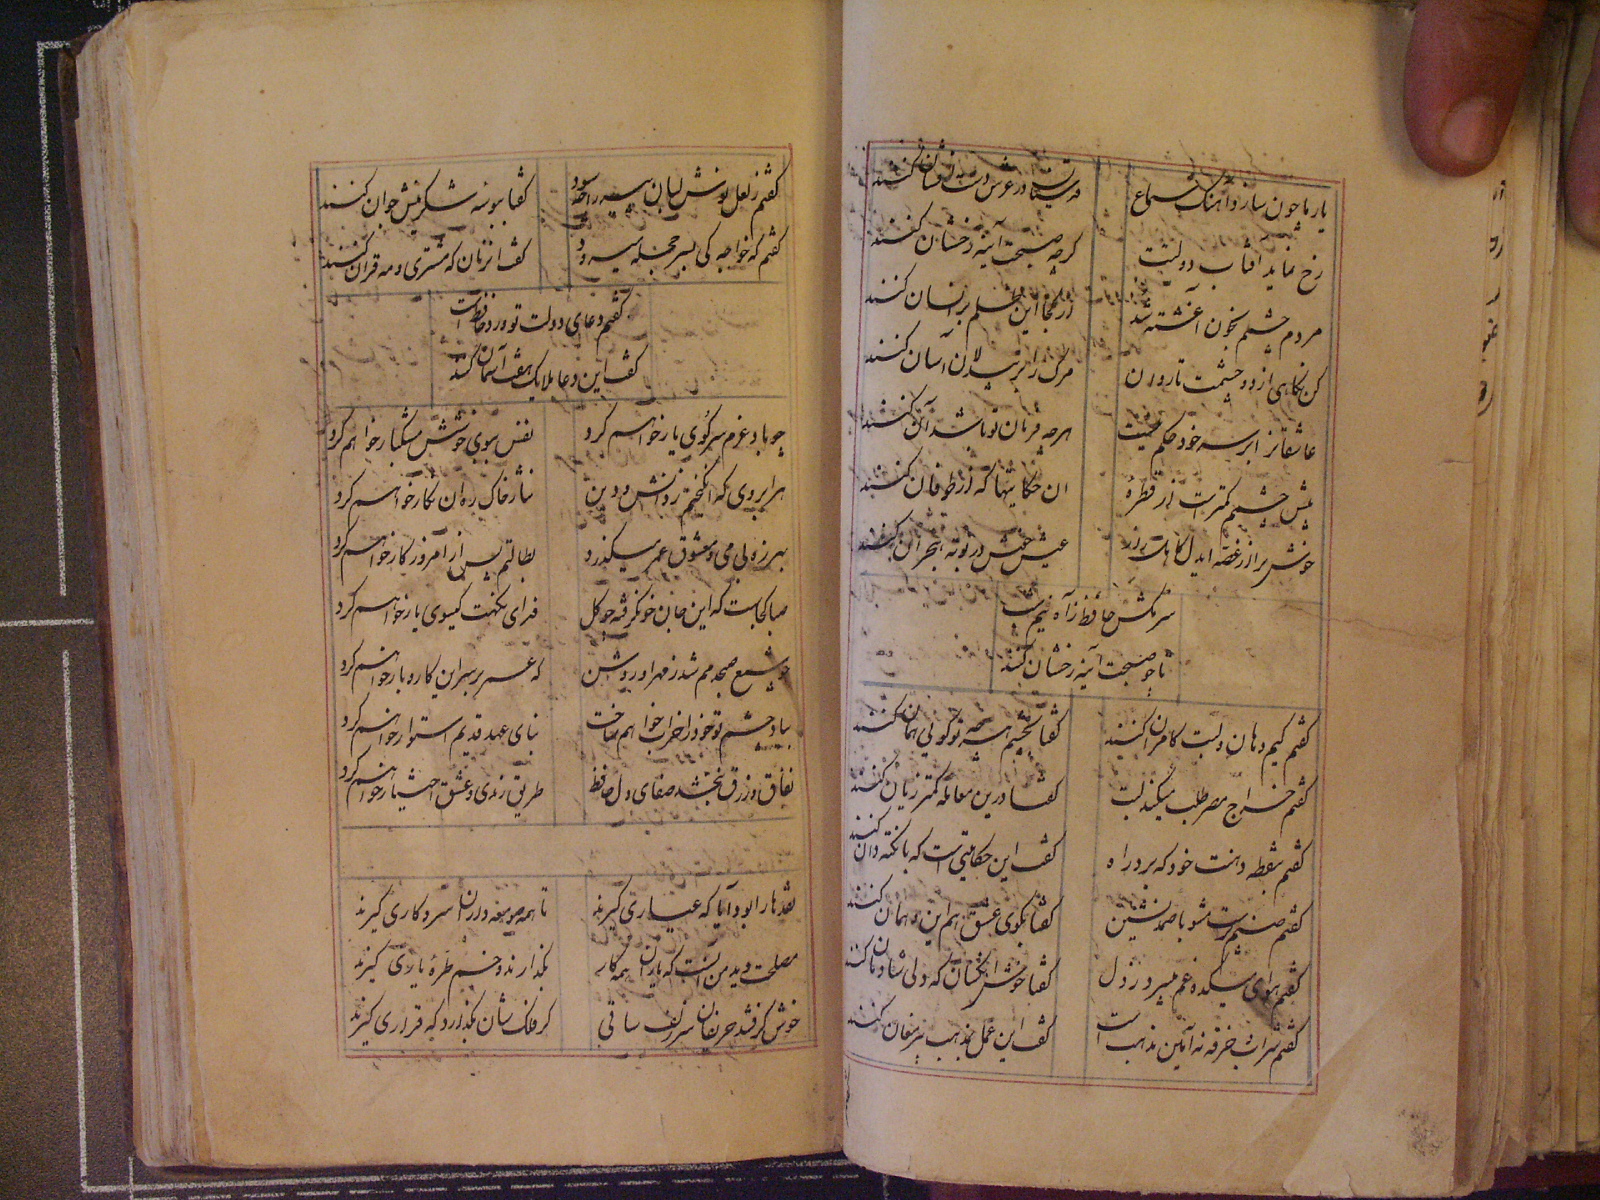 یار ما چون سازد آهنگ سماع قدسیان در عرش دست افشان کنند
رخ نماید آفتاب دولتت گر چو صبحت آینه رخشان کنند
مردم چشمم بخون آغشته شد از کجا این ظلم بر انسان کنند
کن نگاهی از دو چشمت تا در آن مرگ را بر بیدلان آسان کنند
عاشقانرا بر سر خود حکم نیست هرچه فرمان تو باشد آن کنند
پیش چشمم کمترست از قطرهٔ ان حکایتها که از طوفان کنند
خوش برا از غصه ایدل کاهل راز عیش خوش در بوته هجران کنند
سر مکش حافظ ز آه نیم شب
تا چو صبحت آینه رخشان کنند
گفتم کیم دهان و لبت کامران کنند گفتا بچشم هرچه تو گویی همان کنند
گفتم خراج مصر طلب میکند لبت گفتا درین معامله کمتر زیان کنند
گفتم بنقطه دهنت خود که برد راه گفت این حکایتی است که با نکته دان کنند
گفتم صنم پرست مشو با صمد نشین گفتا بکوی عشق هم این و همان کنند
گفتم هوای میکده غم میبرد ز دل گفتا خوش آن کسان که دلی شادمان کنند
گفتم شراب و خرقه نه آئین مذهب است گفت این عمل بمذهب پیر مغان کنند
گفتم ز لعل نوش لبان پیر را چه سود گفتا ببوسه شکرینش جوان کنند
گفتم که خواجه کی بسر حجله میرود گفت انزمان که مشتری و مه قران کنند
گفتم دعای دولت تو ورد حافظ است
گفت این دعا ملایک هفت آسمان کنند
چو باد عزم سر کوی یار خواهم کرد نفس ببوی خوشش مشکبار خواهم کرد
هر ابروی که اندوختم ز دانش و دین نثار خاک ره ان نگار خواهم کرد
بهرزه بی می و معشوق عمر میگذرد بطالتم بس از امروز کار خواهم کرد
صبا کجاست که این جان خون گرفته چو گل فدای نکهت گیسوی یار خواهم کرد
چو شمع صبحدمم شد ز مهر او روشن که عمر بر سر این کار و بار خواهم کرد
بیاد چشم تو خود را خراب خواهم ساخت بنای عهد قدیم استوار خواهم کرد
نفاق و زرق نبخشد صفای دل حافظ طریق رندی و عشق اختیار خواهم کرد
نقدها را بود آیا که عیاری گیرند تا همه صومعه داران پی کاری گیرند
مصلحت دید من آنست که یاران همه کار بگذارند و خم طره یاری گیرند
خوش گرفتند حریفان سر زلف ساقی گر فلک شان بگذارد که قراری گیرند